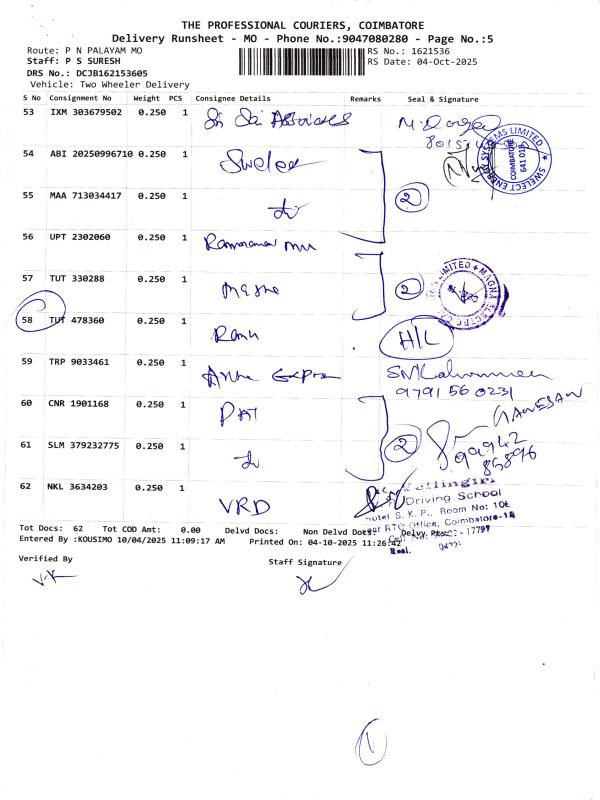 THE PROFESSIONAL COURIERS, COIMBATORE
Delivery Runsheet - MO - Phone No.:9047080280 - Page No.:5
Route: P N PALAYAM MO
RS No.: 1621536
Staff: P S SURESH
RS Date: 04-Oct-2025
DRS No.: DCJB162153605
Vehicle: Two Wheeler Delivery
S No Consignment No Weight PCS Consignee Details Remarks Seal & Signature
53 IXM 303679502 0.250 1 Sri Sai Associates
54 ABI 20250996710 0.250 1
SWELECT ENERGY SYSTEMS LIMITED
COIMBATORE
641 018
55 MAA 713034417 0.250 1 2
56 UPT 2302060 0.250 1
57 TUT 330288 0.250 1 2
58 TUT 478360 0.250 1 Ramu H/L
59 TRP 9033461 0.250 1
9791560231
60 CNR 1901168 0.250 1 GANESAN
61 SLM 379232775 0.250 1 2
99942
85896
62 NKL 3634203 0.250 1 VRD
Driving School
Hotel S. K. P., Room No: 106
RTO Office, Coimbatore-18
Tot Docs: 62 Tot COD Amt: 0.00 Delvd Docs: Non Delvd Docs: Delvy Pts:
Entered By :KOUSIMO 10/04/2025 11:09:17 AM Printed On: 04-10-2025 11:26:42
Verified By
Staff Signature
1